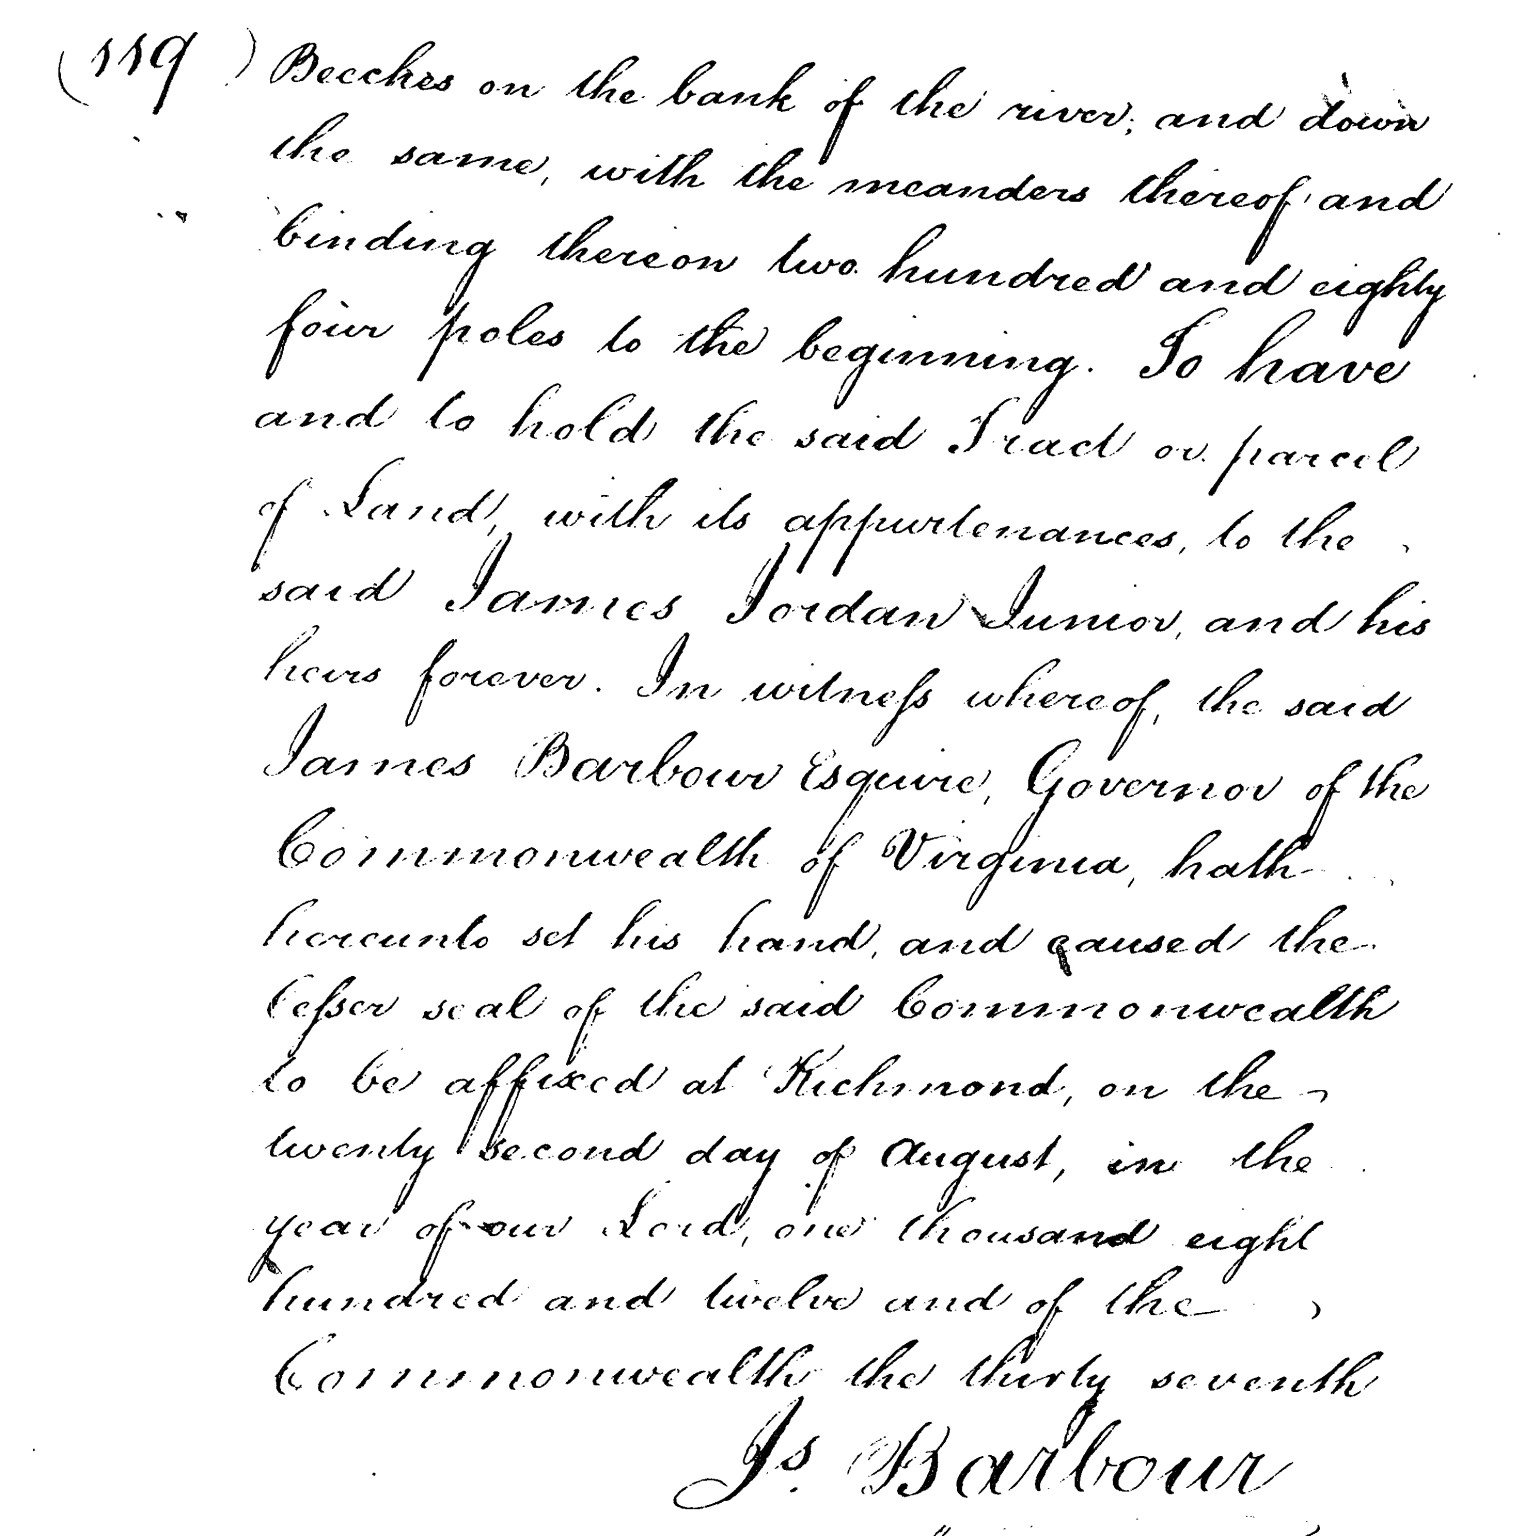 (119) Beeches on the bank of the river; and down
the same, with the meanders thereof and
binding thereon two hundred and eighty
four poles to the beginning. To have
and to hold the said Tract or parcel
of Land, with its appurtenances, to the
said James Jordan Junior, and his
heirs forever. In witneſs whereof, the said
James Barbour Esquire, Governor of the
Commonwealth of Virginia, hath
hereunto set his hand, and caused the
leſser seal of the said Commonwealth
to be affixed at Richmond, on the
twenty second day of August, in the
year of our Lord, one thousand eight
hundred and twelve and of the
Commonwealth the thirty seventh
Js. Barbour